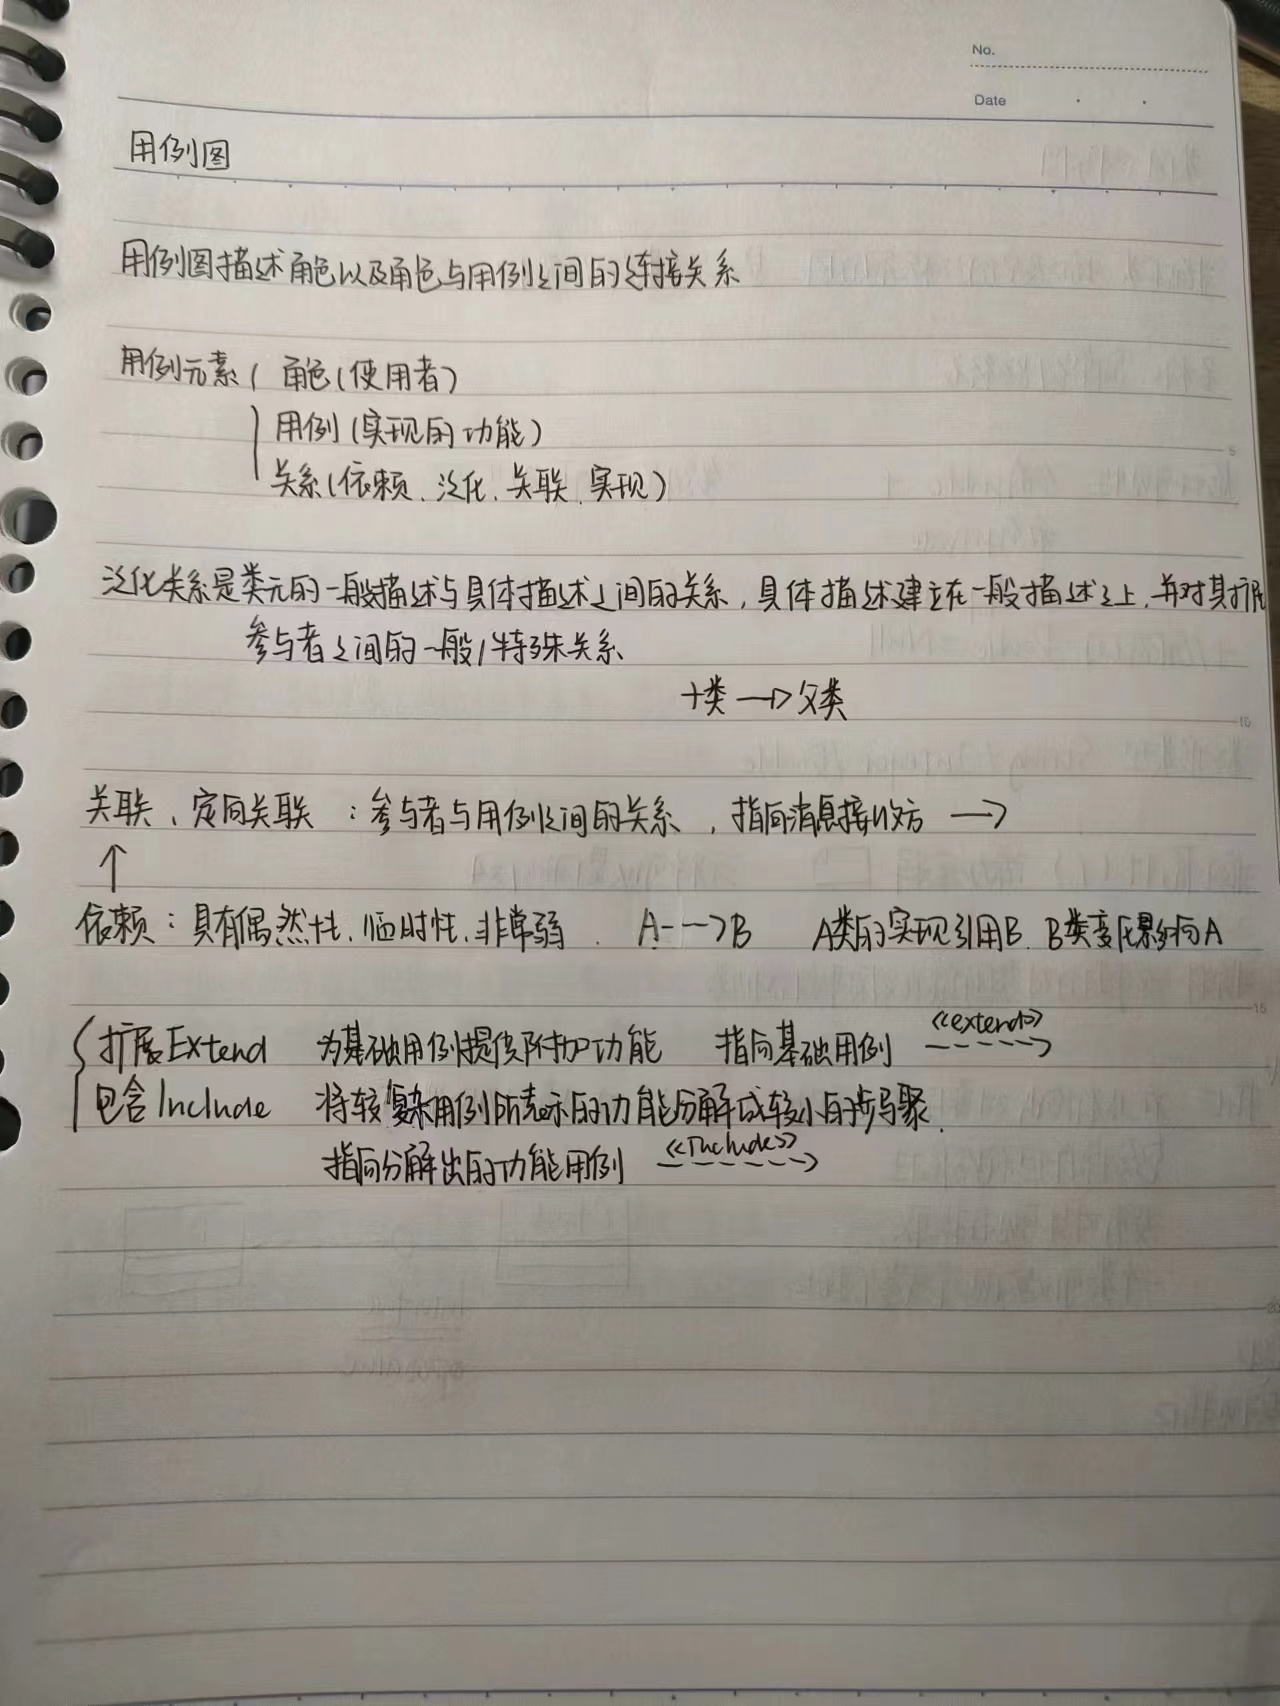 No.
Date
用例图
用例图描述角色以及角色与用例之间的连接关系
用例元素{ 角色(使用者)
用例(实现的功能)
关系(依赖、泛化、关联、实现)
泛化关系是类元的一般描述与具体描述之间的关系,具体描述建立在一般描述之上,并对其扩展
参与者之间的一般/特殊关系
子类 —▷ 父类
关联、定向关联:参与者与用例之间的关系,指向消息接收方 →
↑
依赖:具有偶然性、临时性、非常弱. A--→B A类的实现引用B. B类变化影响A
{扩展Extend 为基础用例提供附加功能 指向基础用例 <<extend>>
包含Include 将较复杂用例所表示的功能分解成较小的步骤.
指向分解出的功能用例 <<Include>>